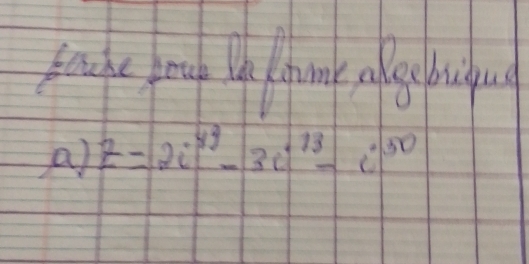 Ecrire sous la forme algebrique
a) z = 2i^49 - 3i^13 - i^50